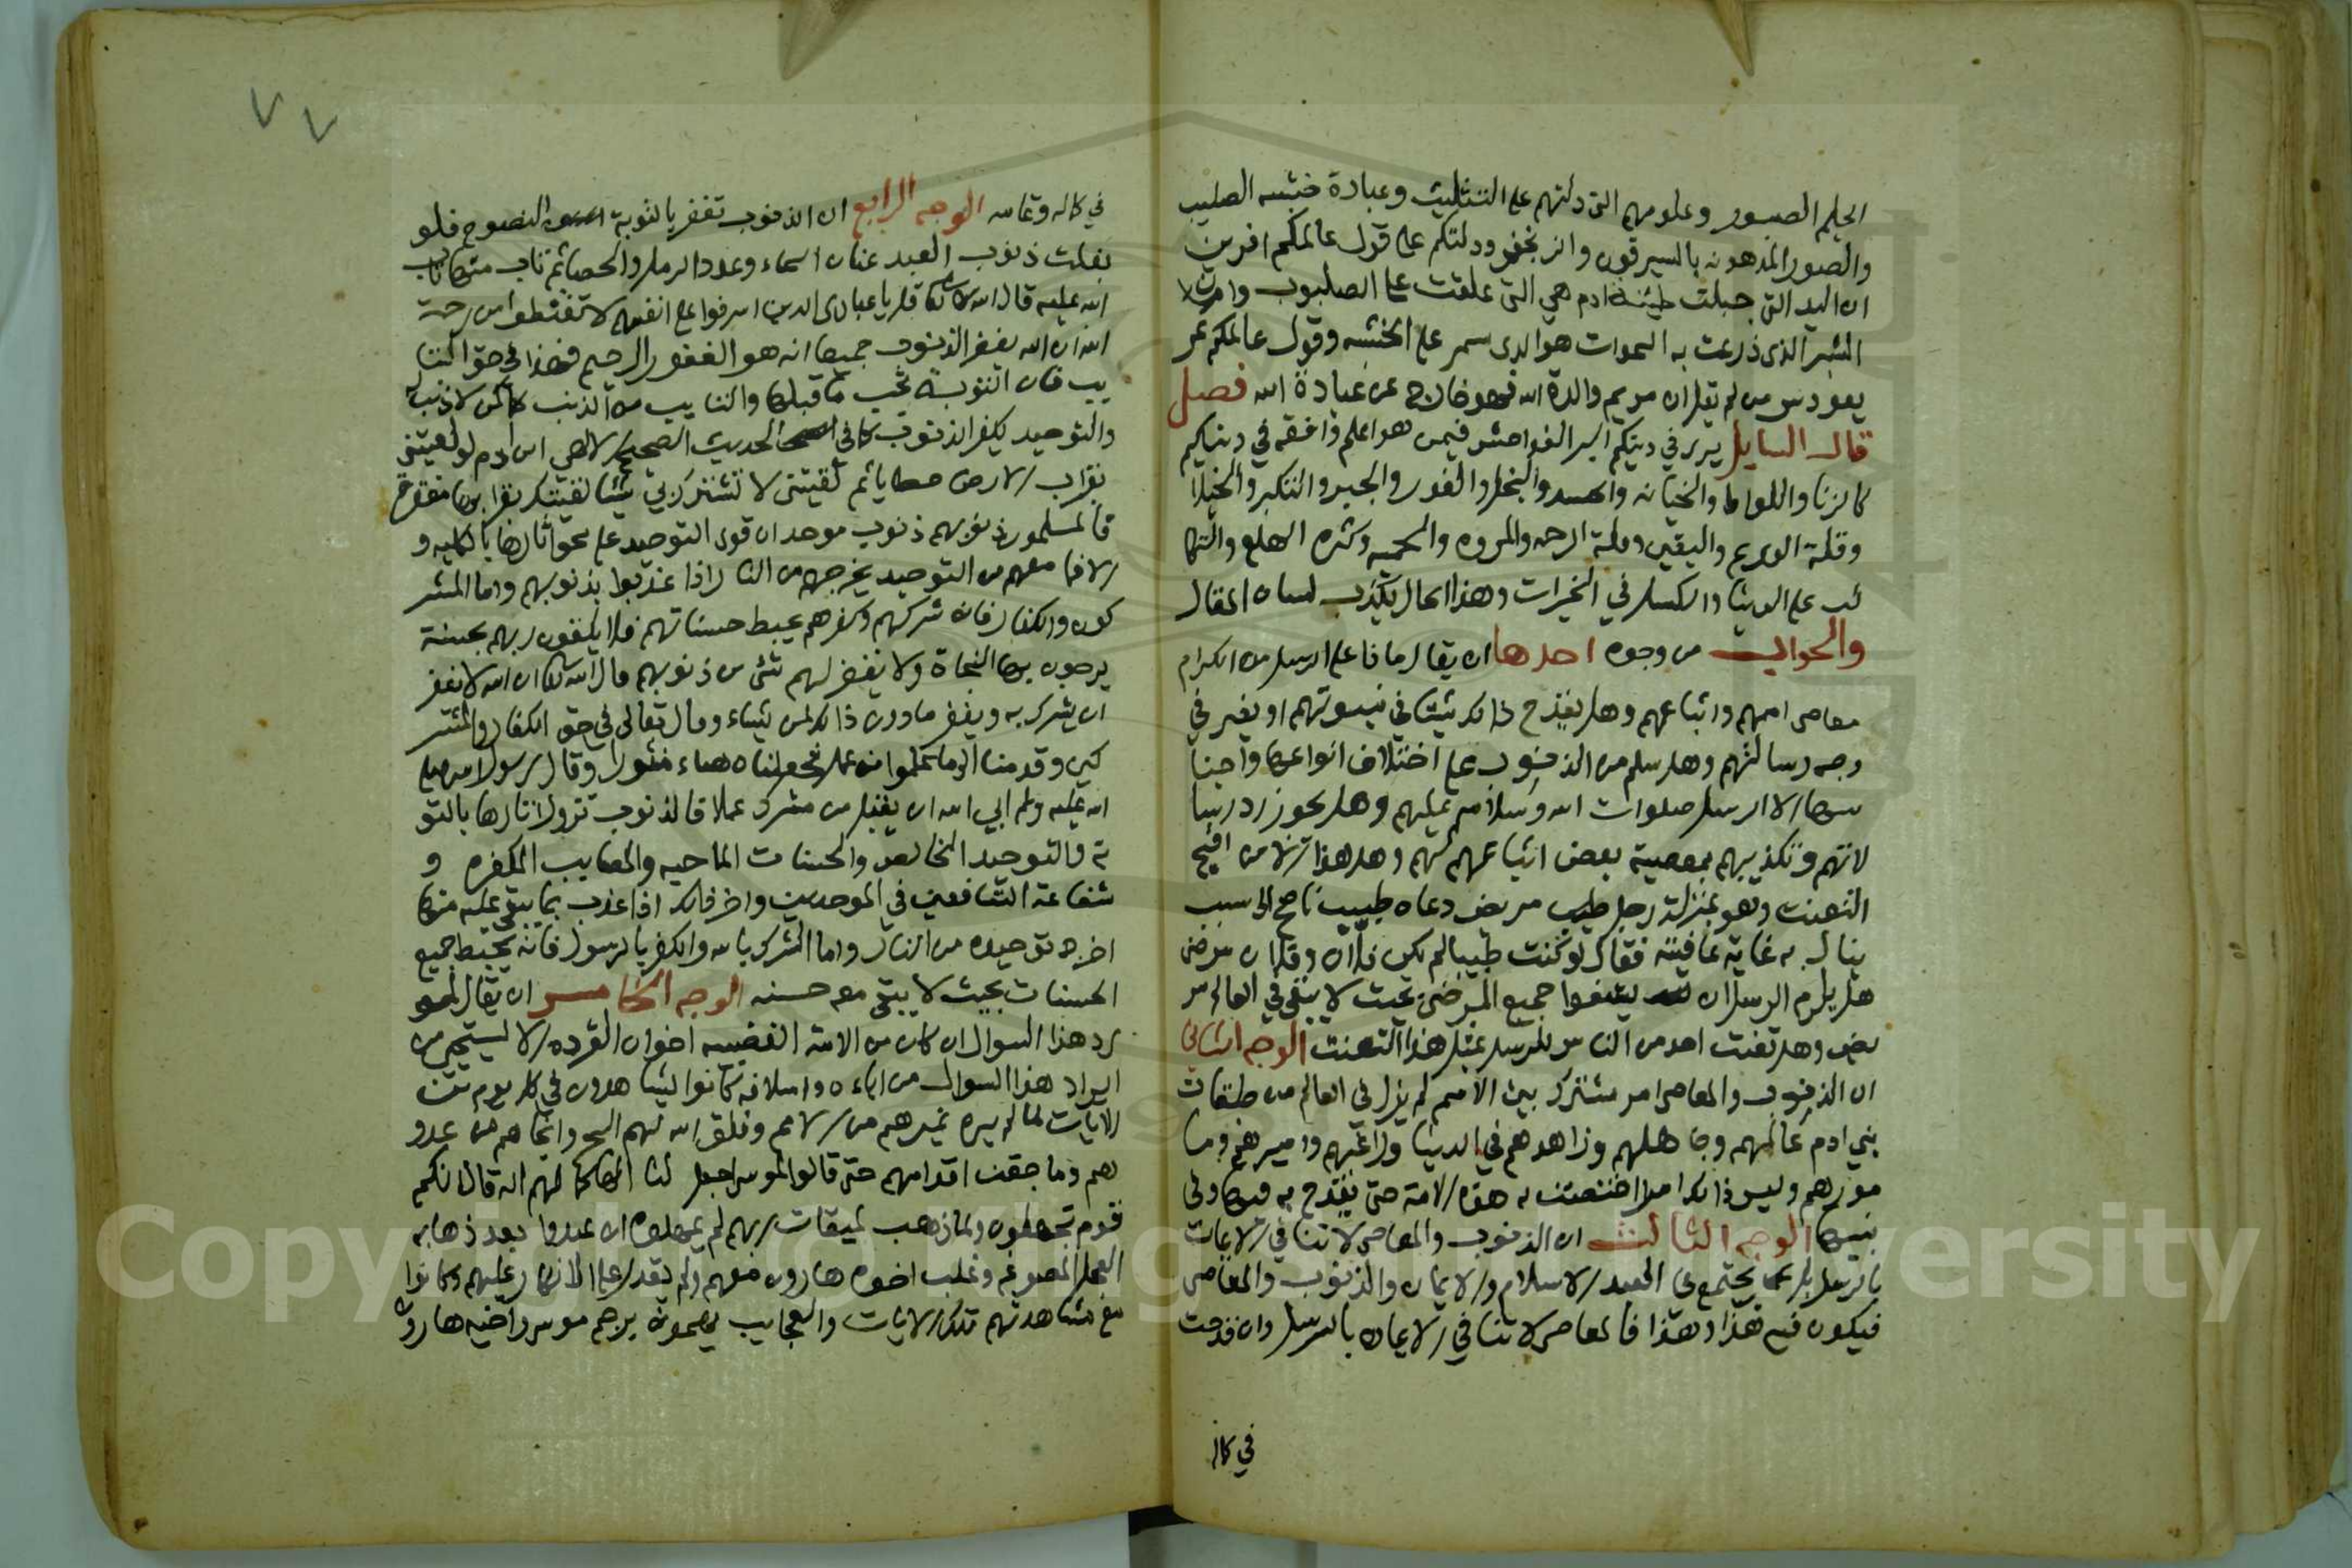 الحليم الصبور وعلومهم التي دلتهم على التثليث وعبادة خشبه الصليب
والصور المدهونه بالسيرقون والزنجفر ودلتكم على قول عالمكم افريم
ان اليد التي جبلت طينة ادم هي التي علقت على الصلبوب وان
الشبر الذي ذرعت به السموات هو الدي سمر على الخشبه وقول عالمكم عر
يعودس من لم يقل ان مريم والدة الله فهو خارج عن عبادة الله فصل
قال السايل يرى في دينكم اكبر الفواحش فيمن هو اعلم وافقه في دينكم
كالزنا واللواط والخيانه والحسد والبخل والغدر والجبر والتكبر والخيلا
وقلة الورع واليقين وقلة الرحمه والمروه والحميه وكثره الهلع والتكا
لب على الدنيا والكسل في الخيرات وهذا الحال يكذب لسان المقال
والجواب من وجوه احدها ان يقال ماذا على الرسل من الكرام
معاصى اممهم واتباعهم وهل يقدح ذالك شيئا في نبوتهم او يغير في
وجه رسالتهم وهل سلم من الذنوب على اختلاف انواعها واجنا
سها الا الرسل صلوات الله وسلامه عليهم وهل يجوز رد رسا
لاتهم وتكذيبهم بمعصية بعض اتباعهم لهم وهل هذا الا من اقبح
التعنت وهو بمنزلة رجل مريض دعاه طبيب ناصح الى سبب
ينال به غاية عافيته فقال لو كنت طبيبا لم يكن فلان وفلان مرضى
هل يلزم الرسل ان يشفوا جميع المرضى بحيث لا يبقى في العالم مر
يض وهل تعنت احد من الناس للرسل بمثل هذا التعنت الوجه الثاني
ان الذنوب والمعاصى امر مشترك بين الامم لم يزل في العالم من طبقات
بني ادم عالمهم وجاهلهم وزاهدهم في الدنيا وراغبهم واميرهم وما
مورهم وليس ذالك امرا اختصت به هذه الامة حتى يقدح به فيها وفي
نبيها الوجه الثالث ان الذنوب والمعاصى لا تنافي الايمان
بالرسل بل يجتمع في العبد الاسلام والايمان والذنوب والمعاصى
فيكون فيه هذا وهذا فالمعاصى لا تنافي الايمان بالرسل وان قدحت
في كماله
٧٧
في كماله وتمامه الوجه الرابع ان الذنوب تغفر بالتوبة النصوح فلو
بلغت ذنوب العبد عنان السماء وعدد الرمل والحصا ثم تاب منها تاب
الله عليه قال الله تعالى قل يا عبادى الدين اسرفوا على انفسهم لا تقنطوا من رحمة
الله ان الله يغفر الذنوب جميعا انه هو الغفور الرحيم فهذا في حق التا
يب فان التوبة تجب ما قبلها والتايب من الذنب كمن لا ذنب له
والتوحيد يكفر الذنوب كما في الحديث الصحيح الالهي ابن ادم لو لقيتني
بقراب الارض خطايا ثم لقيتني لا تشرك بي شيئا لقيتك بقرابها مغفرة
فالمسلمون ذنوبهم ذنوب موحد ان قوى التوحيد على محو اثارها بالكليه و
الا فما معهم من التوحيد يخرجهم من النار اذا عذبوا بذنوبهم واما المشر
كون والكفار فان شركهم وكفرهم يحبط حسناتهم فلا يلقون ربهم بحسنة
يرجون بها النجاة ولا يغفر لهم شئ من ذنوبهم قال الله تعالى ان الله لا يغفر
ان يشرك به ويغفر ما دون ذالك لمن يشاء وقال تعالى في حق الكفار والمشر
كين وقدمنا الى ما عملوا من عمل فجعلناه هباء منثورا وقال رسول الله صلى
الله عليه وسلم ابى الله ان يقبل من مشرك عملا فالذنوب تزول اثارها بالتو
بة والتوحيد الخالص والحسنات الماحيه والمصايب المكفره و
شفاعة الشافعين في الموحدين واخر ذالك اذا عذب بما يبقى عليه منها
اخرجه توحيده من النار واما الشرك بالله والكفر بالرسول فانه يحبط جميع
الحسنات بحيث لا يبقى معه حسنه الوجه الخامس ان يقال لمو
رد هذا السوال ان كان من الامة الغضبيه اخوان القرده الا يستحي من
ايراد هذا السوال من اباءه واسلافه كانوا يشاهدون في كل يوم من
الايات لما لم يره غيرهم من الامم وفلق الله لهم البحر وانجاهم من عدو
هم وما جفت اقدامهم حتى قالوا لموسى اجعل لنا الها كما لهم الهة قال انكم
قوم تجهلون ولما ذهب لميقات ربهم لم يمهلوه ان عبدوا بعد ذهابه
العجل المصوغ وغلب اخوه هارون معهم ولم يقدر على الانكار عليهم وكانوا
مع مشاهدتهم تلك الايات والعجايب يهمون برجم موسى واخيه هارون
Copyright © King Saud University